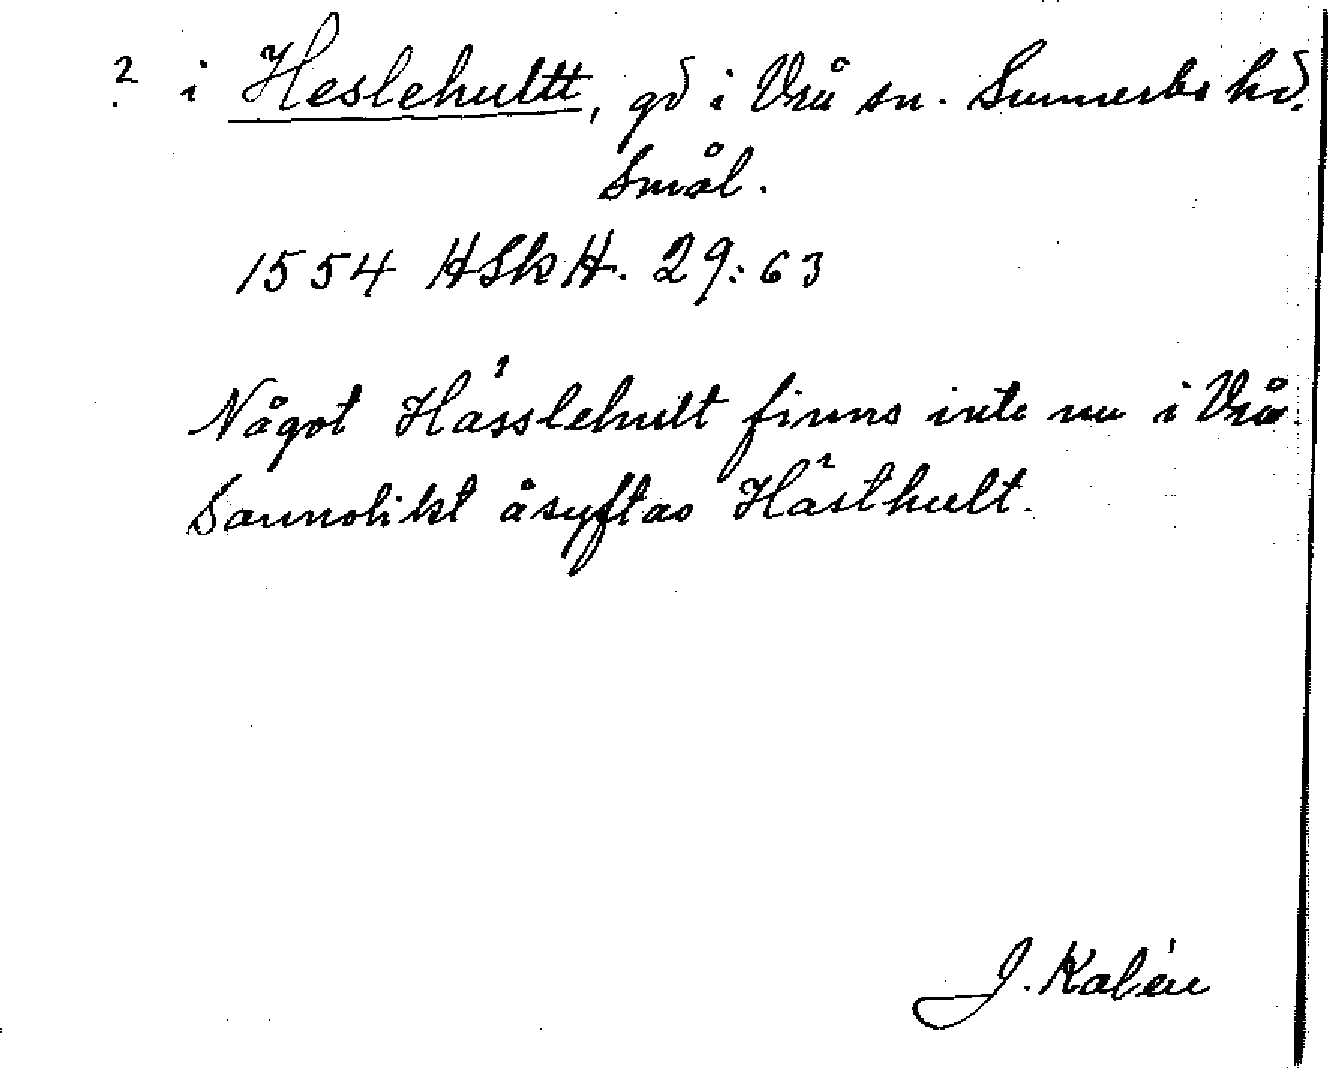 ? i Heslehultt, gd i Vrå sn. Sunnerbo hd.
Smål.
1554 HSkH. 29:63
Något Hässlehult finns inte nu i Vrå.
Sannolikt åsyftas Hästhult.
J. Kalén